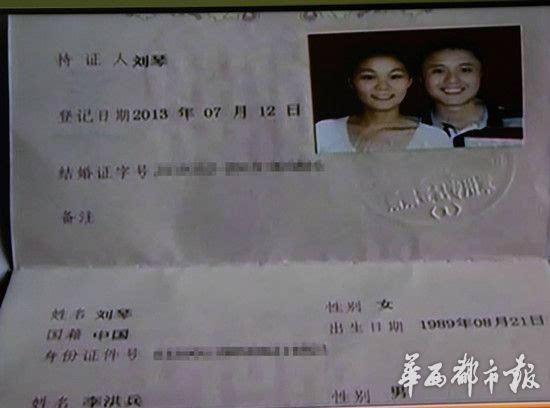 持 证 人 刘琴
登记日期 2013 年 07 月 12 日
结婚证字号
备注
姓名 刘琴 性别 女
国籍 中国 出生日期 1989年08月21日
身份证件号
姓名 李洪兵 性别 男
华西都市报